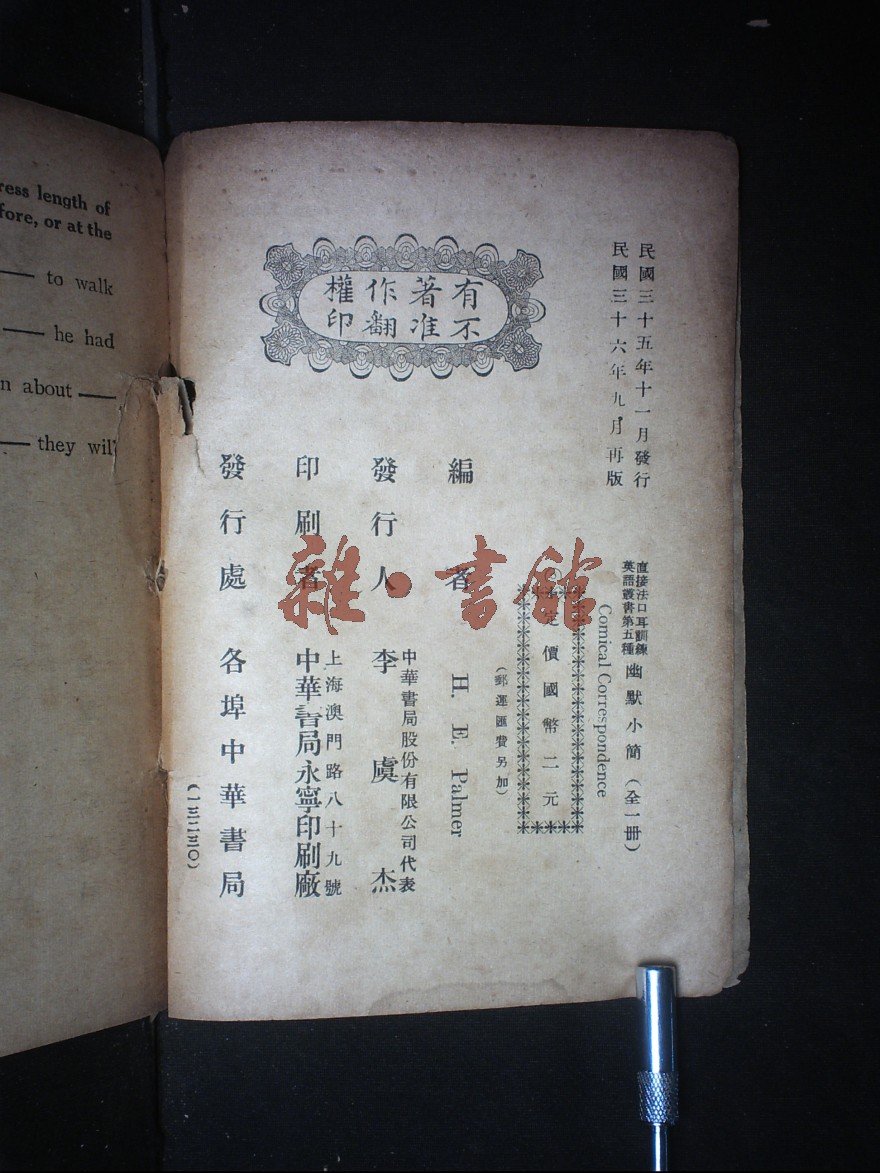 ress length of
fore, or at the
to walk
he had
n about
they wil
民國三十五年十一月發行
民國三十六年九月再版
有著作權
不准翻印
直接法口耳訓練
英語叢書第五種
幽默小簡（全一册）
Comical Correspondence
定價國幣二元
（郵運匯費另加）
編者 H. E. Palmer
中華書局股份有限公司代表
發行人 李虞杰
上海澳門路八十九號
印刷者 中華書局永寧印刷廠
發行處 各埠中華書局
（一三二三〇）
雜·書館